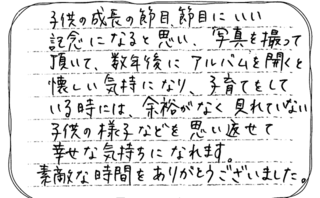 子供の成長の節目節目にいい
記念になると思い、写真を撮って
頂いて、数年後にアルバムを開くと
懐しい気持になり、子育てをして
いる時には、余裕がなく見れていない
子供の様子などを思い返せて
幸せな気持ちになれます。
素敵な時間をありがとうございました。